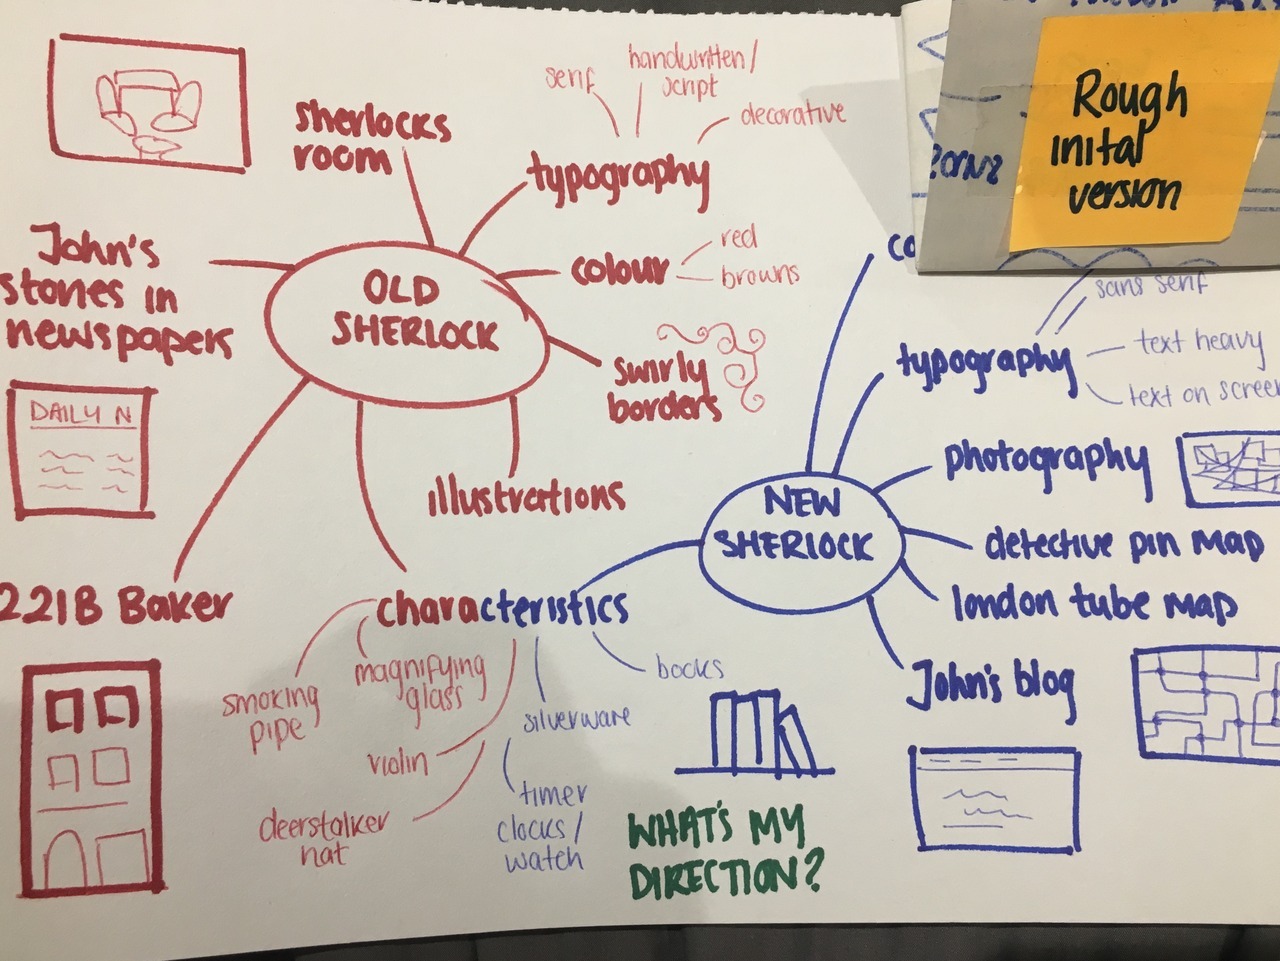 Rough
inital
version
handwritten/
script
serif
decorative
sherlocks
room
typography
John's
stories in
newspapers
OLD
SHERLOCK
colour
red
browns
swirly
borders
DAILY N
illustrations
221B Baker
characteristics
smoking
pipe
magnifying
glass
violin
deerstalker
hat
silverware
timer
clocks/
watch
books
WHAT'S MY
DIRECTION?
NEW
SHERLOCK
co
typography
sans serif
text heavy
text on screen
photography
detective pin map
london tube map
John's blog